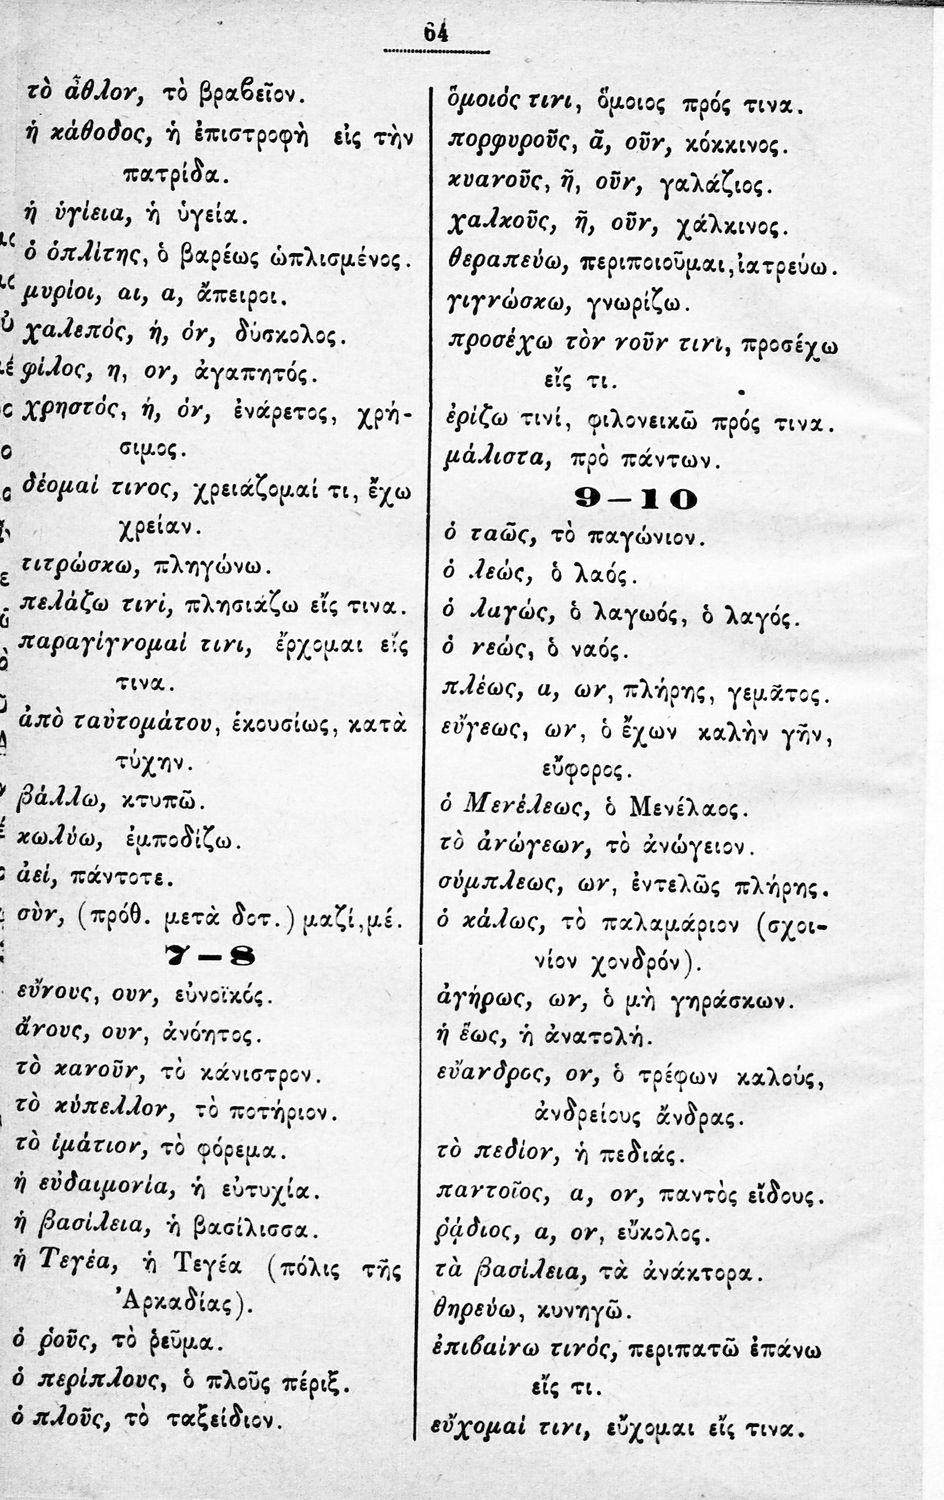 64
τὸ ἆθλον, τὸ βραβεῖον.
ἡ κάθοδος, ἡ ἐπιστροφὴ εἰς τὴν
πατρίδα.
ἡ ὑγίεια, ἡ ὑγεία.
ὁ ὁπλίτης, ὁ βαρέως ὡπλισμένος.
μυρίοι, αι, α, ἄπειροι.
χαλεπός, ή, όν, δύσκολος.
φίλος, η, ον, ἀγαπητός.
χρηστός, ή, όν, ἐνάρετος, χρή-
σιμος.
δέομαί τινος, χρειάζομαί τι, ἔχω
χρείαν.
τιτρώσκω, πληγώνω.
πελάζω τινί, πλησιάζω εἴς τινα.
παραγίγνομαί τινι, ἔρχομαι εἴς
τινα.
ἀπὸ ταὐτομάτου, ἑκουσίως, κατὰ
τύχην.
βάλλω, κτυπῶ.
κωλύω, ἐμποδίζω.
ἀεί, πάντοτε.
σὺν, (πρόθ. μετὰ δοτ.) μαζί, μέ.
7—8
εὔνους, ουν, εὐνοϊκός.
ἄνους, ουν, ἀνόητος.
τὸ κανοῦν, τὸ κάνιστρον.
τὸ κύπελλον, τὸ ποτήριον.
τὸ ἱμάτιον, τὸ φόρεμα.
ἡ εὐδαιμονία, ἡ εὐτυχία.
ἡ βασίλεια, ἡ βασίλισσα.
ἡ Τεγέα, ἡ Τεγέα (πόλις τῆς
Ἀρκαδίας).
ὁ ῥοῦς, τὸ ῥεῦμα.
ὁ περίπλους, ὁ πλοῦς πέριξ.
ὁ πλοῦς, τὸ ταξείδιον.
ὅμοιός τινι, ὅμοιος πρός τινα.
πορφυροῦς, ᾶ, οῦν, κόκκινος.
κυανοῦς, ῆ, οῦν, γαλάζιος.
χαλκοῦς, ῆ, οῦν, χάλκινος.
θεραπεύω, περιποιοῦμαι, ἰατρεύω.
γιγνώσκω, γνωρίζω.
προσέχω τὸν νοῦν τινι, προσέχω
εἴς τι.
ἐρίζω τινί, φιλονεικῶ πρός τινα.
μάλιστα, πρὸ πάντων.
9—10
ὁ ταῶς, τὸ παγώνιον.
ὁ λεώς, ὁ λαός.
ὁ λαγώς, ὁ λαγωός, ὁ λαγός.
ὁ νεώς, ὁ ναός.
πλέως, α, ων, πλήρης, γεμᾶτος.
εὔγεως, ων, ὁ ἔχων καλὴν γῆν,
εὔφορος.
ὁ Μενέλεως, ὁ Μενέλαος.
τὸ ἀνώγεων, τὸ ἀνώγειον.
σύμπλεως, ων, ἐντελῶς πλήρης.
ὁ κάλως, τὸ παλαμάριον (σχοι-
νίον χονδρόν).
ἀγήρως, ων, ὁ μὴ γηράσκων.
ἡ ἕως, ἡ ἀνατολή.
εὔανδρος, ον, ὁ τρέφων καλούς,
ἀνδρείους ἄνδρας.
τὸ πεδίον, ἡ πεδιάς.
παντοῖος, α, ον, παντὸς εἴδους.
ῥᾴδιος, α, ον, εὔκολος.
τὰ βασίλεια, τὰ ἀνάκτορα.
θηρεύω, κυνηγῶ.
ἐπιβαίνω τινός, περιπατῶ ἐπάνω
εἴς τι.
εὔχομαί τινι, εὔχομαι εἴς τινα.